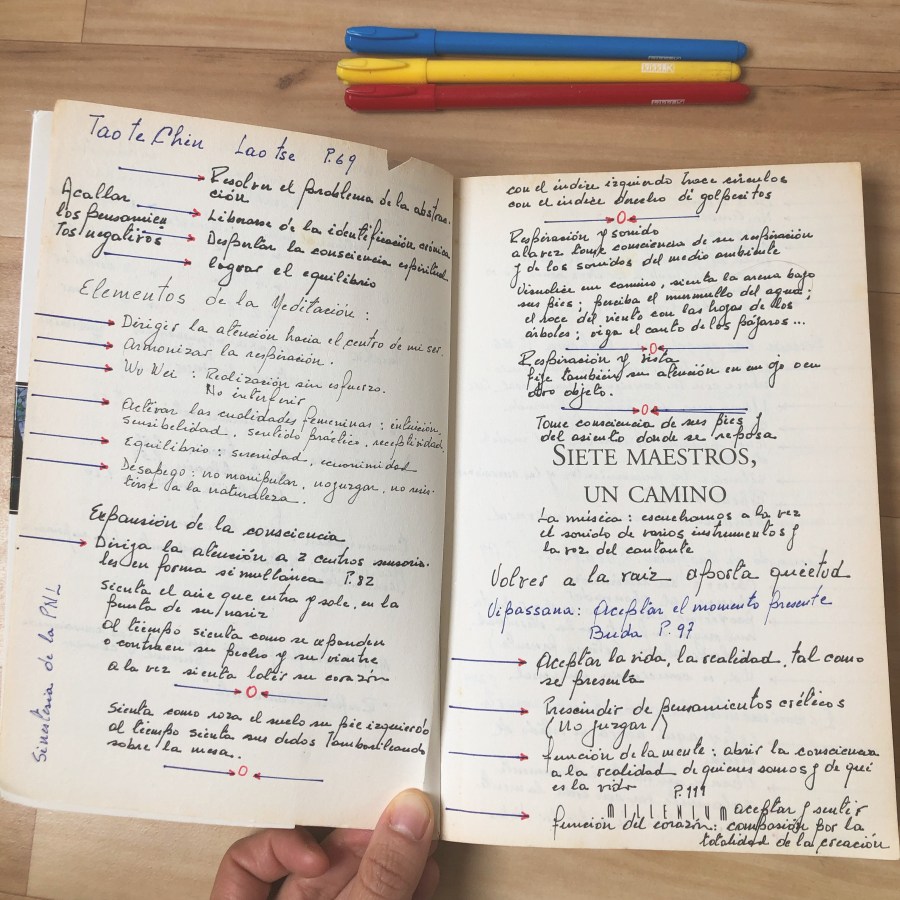 Tao te Chin Lao tse P.69
Resolver el problema de la abstrac-
ción
Acallar
los pensamien
tos negativos
Liberarse de la identificación crónica
Despertar la consciencia espiritual
lograr el equilibrio
Elementos de la Meditación :
Dirigir la atención hacia el centro de mi ser.
Armonizar la respiración .
Wu Wei : Realización sin esfuerzo.
No interferir
Activar las cualidades femeninas : intuición,
sensibilidad, sentido práctico, receptividad,
Equilibrio : serenidad, ecuanimidad
Desapego : no manipular, no juzgar, no resis-
tirse a la naturaleza.
Expansión de la consciencia
Dirija la atención a 2 centros sensoria-
les en forma simultánea P.82
Sienta el aire que entra y sale, en la
punta de su nariz
al tiempo sienta como se expanden
o contraen su pecho y su vientre
a la vez sienta latir su corazón
O
Sienta como roza el suelo su pie izquierdo
al tiempo sienta sus dedos tamborileando
sobre la mesa.
O
Sinestesia de la PNL
con el índice izquierdo trace círculos
con el índice derecho dé golpecitos
O
Respiración y sonido
a la vez tome consciencia de su respiración
y de los sonidos del medio ambiente
Visualice un camino, sienta la arena bajo
sus pies ; perciba el murmullo del agua ;
el roce del viento con las hojas de los
árboles ; oiga el canto de los pájaros ...
O
Respiración y vista
fije también su atención en un ojo o en
otro objeto.
O
Tome consciencia de sus pies y
del asiento donde se reposa
SIETE MAESTROS,
UN CAMINO
La música : escuchamos a la vez
el sonido de varios instrumentos y
la voz del cantante
Volver a la raiz aporta quietud
Vipassana: Aceptar el momento presente
Buda P.97
Aceptar la vida, la realidad, tal como
se presenta
Prescindir de pensamientos críticos
(No juzgar)
función de la mente : abrir la consciencia
a la realidad de quienes somos y de qué
es la vida
P.111
MILLENIUM aceptar y sentir
función del corazón: compasión por la
totalidad de la creación